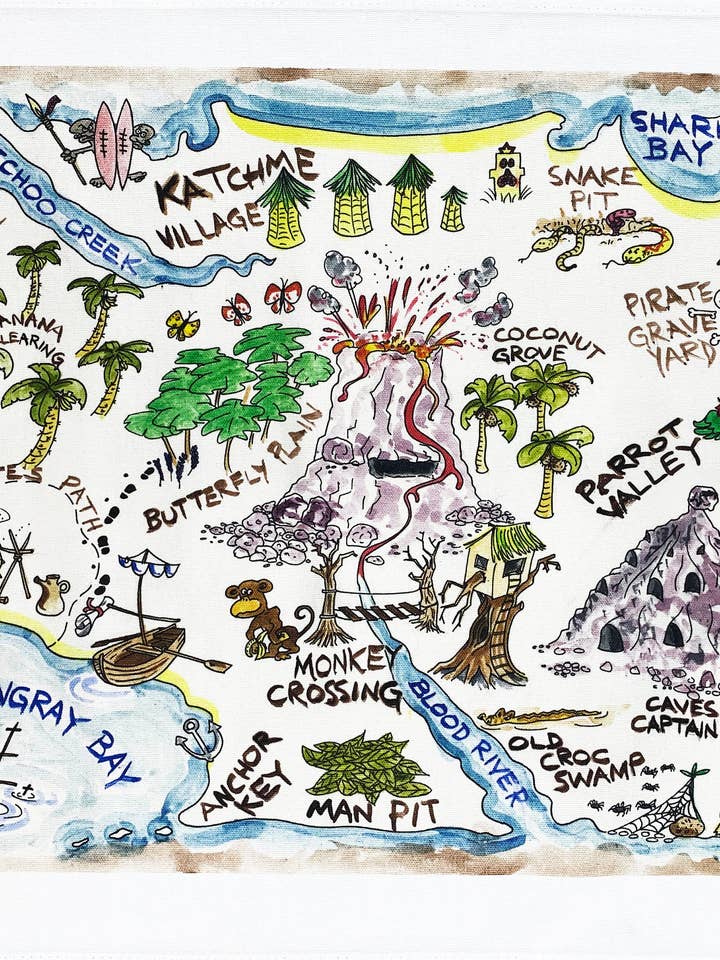 SHARK
BAY
KATCHME
VILLAGE
SNAKE
PIT
CHOO CREEK
PIRATE
GRAVE
YARD
ANANA
LEARING
COCONUT
GROVE
PARROT
VALLEY
BUTTERFLY PLAIN
ES PATH
MONKEY
CROSSING
NGRAY BAY
BLOOD RIVER
CAVES
CAPTAIN
OLD
CROC
SWAMP
ANCHOR
KEY
MAN PIT